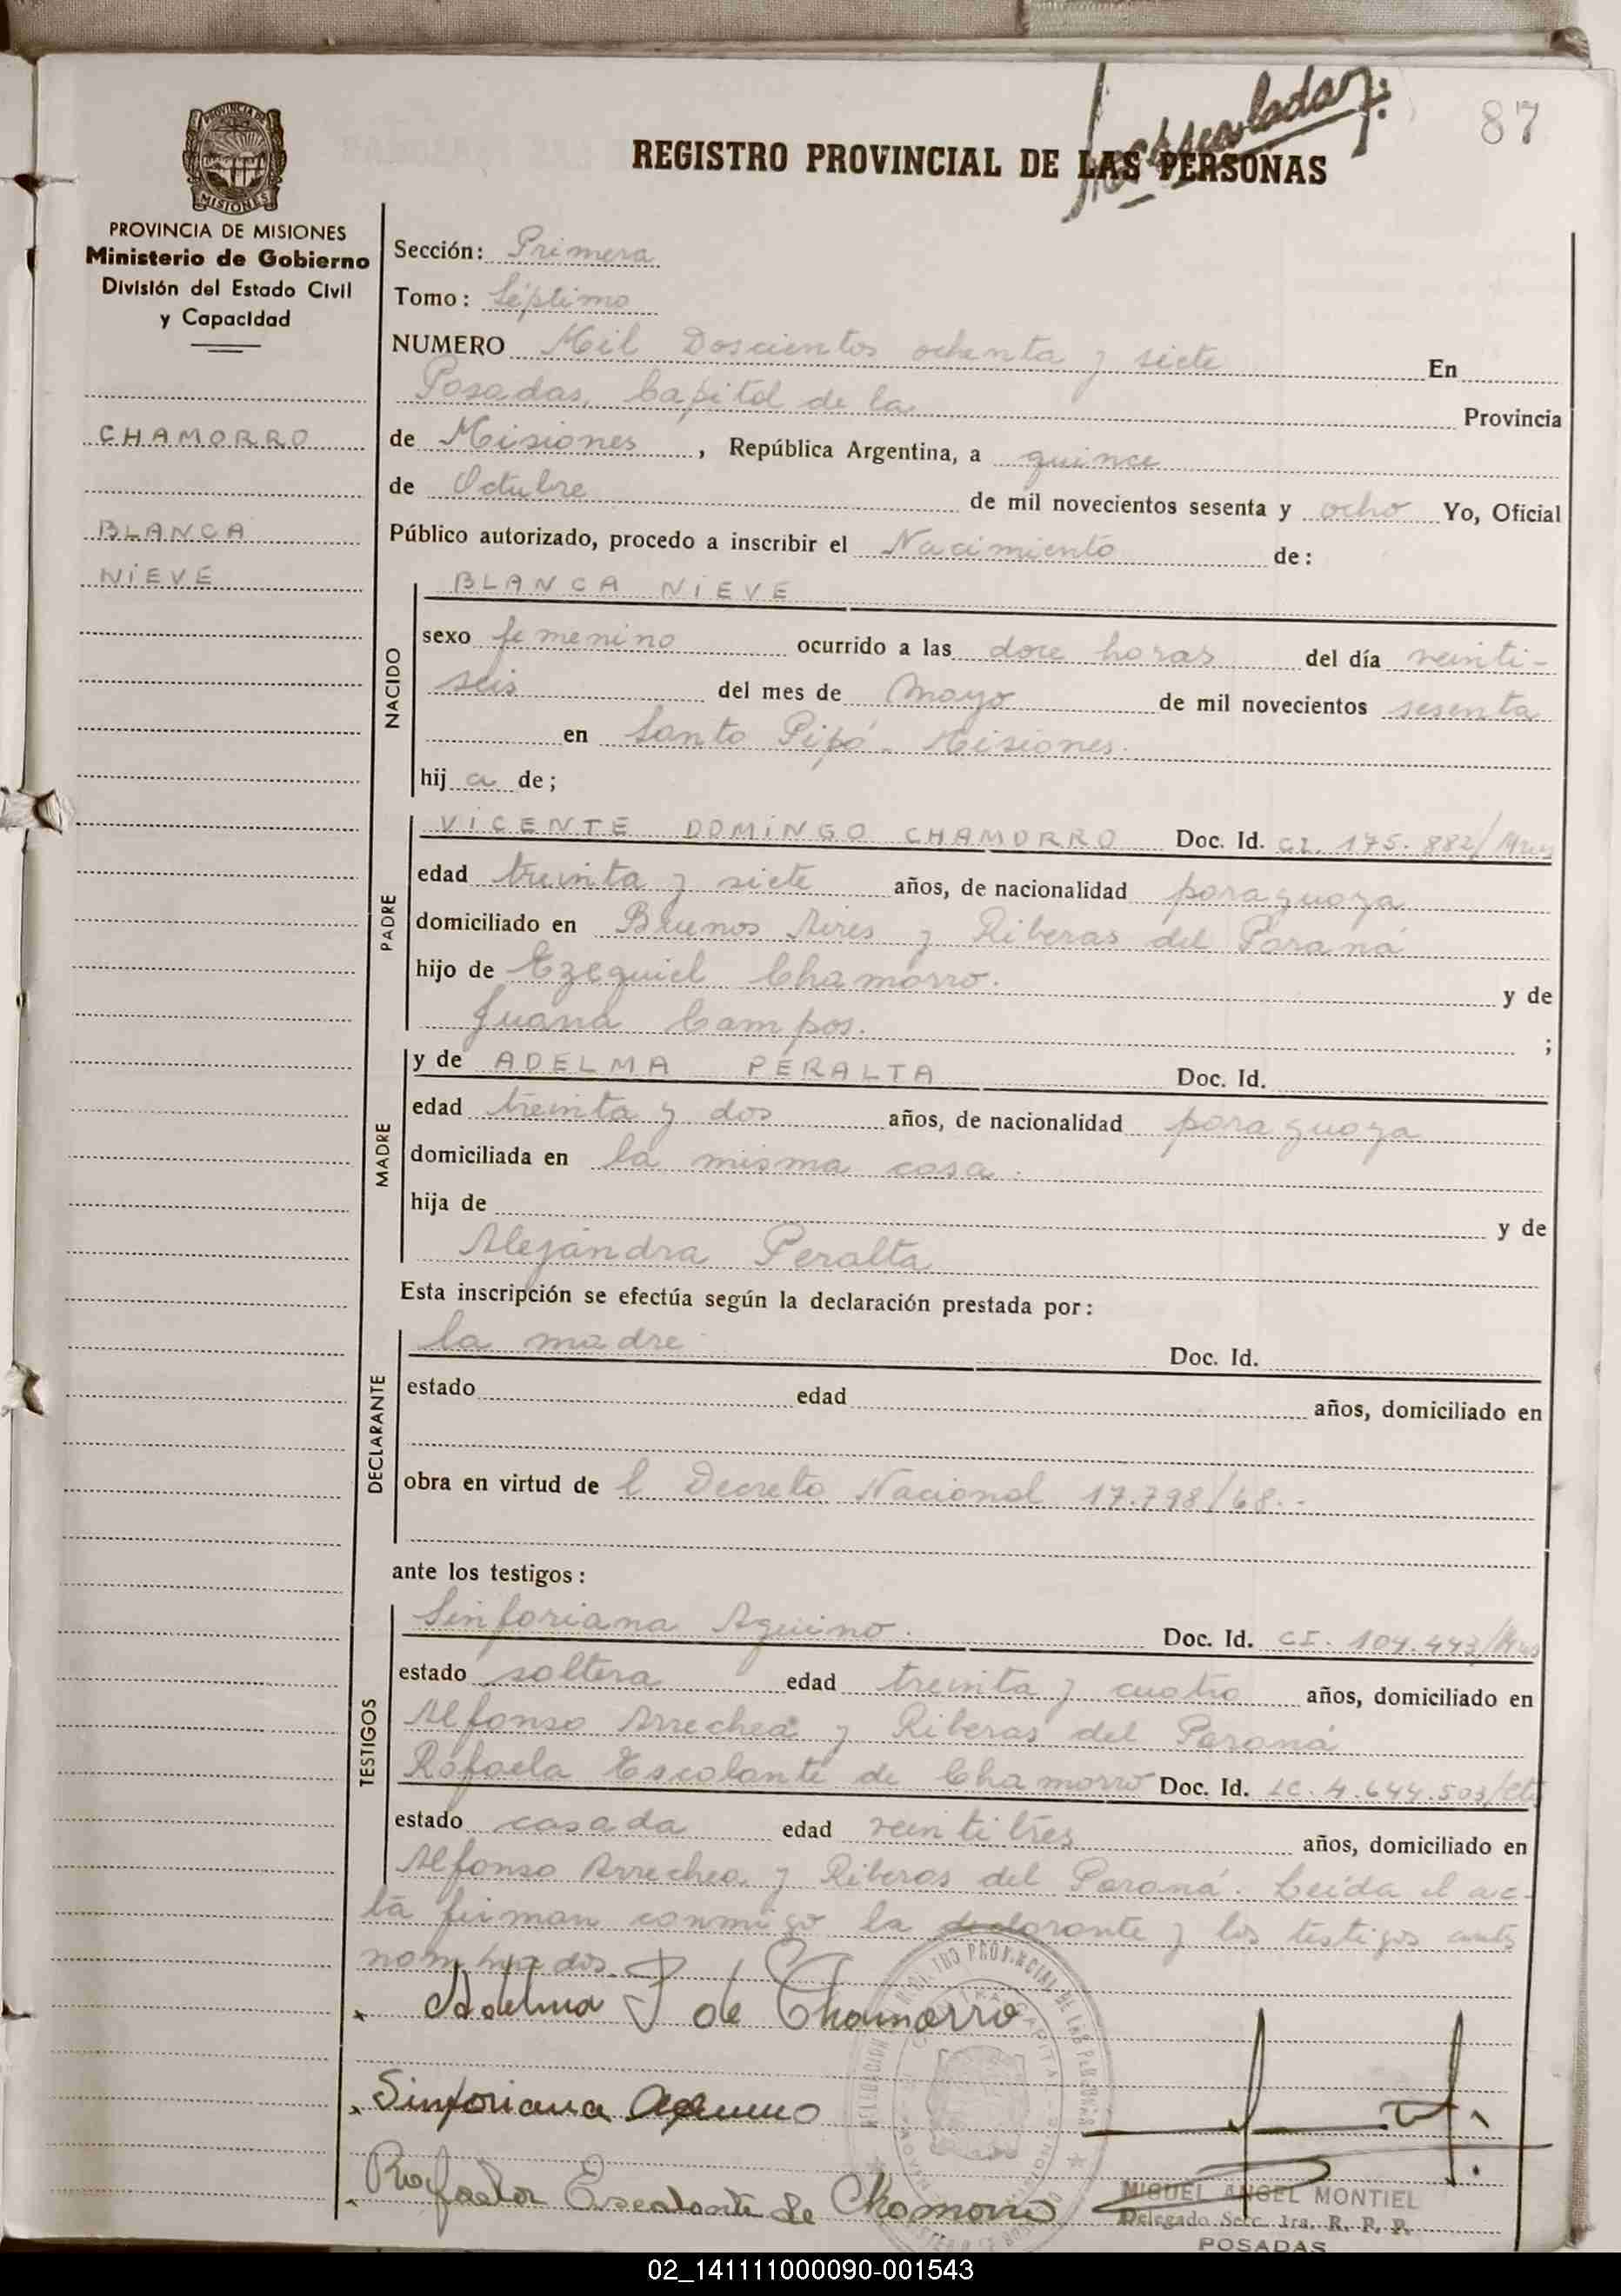 87
REGISTRO PROVINCIAL DE LAS PERSONAS
PROVINCIA DE MISIONES
Ministerio de Gobierno
División del Estado Civil
y Capacidad
CHAMORRO
BLANCA
NIEVE
Sección: Primera
Tomo: Séptimo
NUMERO Mil Doscientos ochenta y siete En
Posadas, Capital de la Provincia
de Misiones, República Argentina, a quince
de Octubre de mil novecientos sesenta y ocho Yo, Oficial
Público autorizado, procedo a inscribir el Nacimiento de:
NACIDO
BLANCA NIEVE
sexo femenino ocurrido a las doce horas del día veinti-
seis del mes de Mayo de mil novecientos sesenta
en Santo Pipó - Misiones.
hija de;
PADRE
VICENTE DOMINGO CHAMORRO Doc. Id. CI. 175.882/Mnes
edad treinta y siete años, de nacionalidad paraguaya
domiciliado en Buenos Aires y Riberas del Paraná
hijo de Ezequiel Chamorro. y de
Juana Campos. ;
MADRE
y de ADELMA PERALTA Doc. Id.
edad treinta y dos años, de nacionalidad paraguaya
domiciliada en la misma casa.
hija de y de
Alejandra Peralta
Esta inscripción se efectúa según la declaración prestada por:
DECLARANTE
la madre Doc. Id.
estado edad años, domiciliado en
obra en virtud de l Decreto Nacional 17.798/68..
ante los testigos:
TESTIGOS
Sinforiana Aquino. Doc. Id. CI. 104.443/Mnes
estado soltera edad treinta y cuatro años, domiciliado en
Alfonso Arrechea y Riberas del Paraná
Rafaela Escalante de Chamorro Doc. Id. LC. 4.644.503/
estado casada edad veintitres años, domiciliado en
Alfonso Arrechea y Riberas del Paraná. Leída el ac-
ta firman conmigo la declarante y los testigos antes
nombrados.
Adelma P de Chamorro
Sinforiana Aquino
Rafaela Escalante de Chamorro
MIGUEL ANGEL MONTIEL
Delegado Secc. 1ra. R. P. P.
POSADAS
02_141111000090-001543